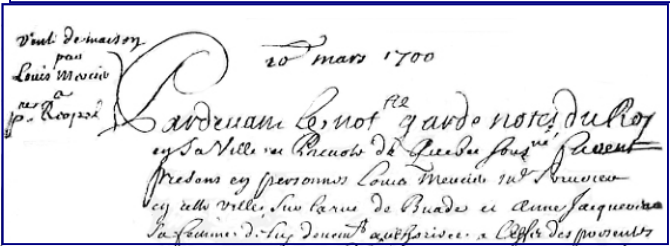 Vente de maison
par
Louis Mercier
a
pre Reopel
10e mars 1700
Pardevant le Notre gardenotes du Roy
en sa Ville et Prevosté de Quebec soussne furent
presens en personnes Louis Mercier md Serrurier
en cette ville, sur la rue de Buade et Anne Jacquereau
sa femme de luy deuemt authorisee a l'effet des presentes